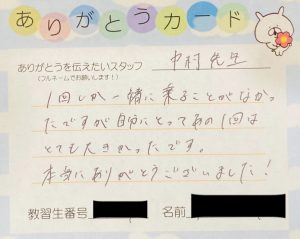 ありがとうカード
ありがとうを伝えたいスタッフ
(フルネームでお願いします!)
中村先生
1回しか一緒に乗ることがなかっ
たですが自分にとってあの1回は
とても大きかったです。
本当にありがとうございました!
教習生番号
名前